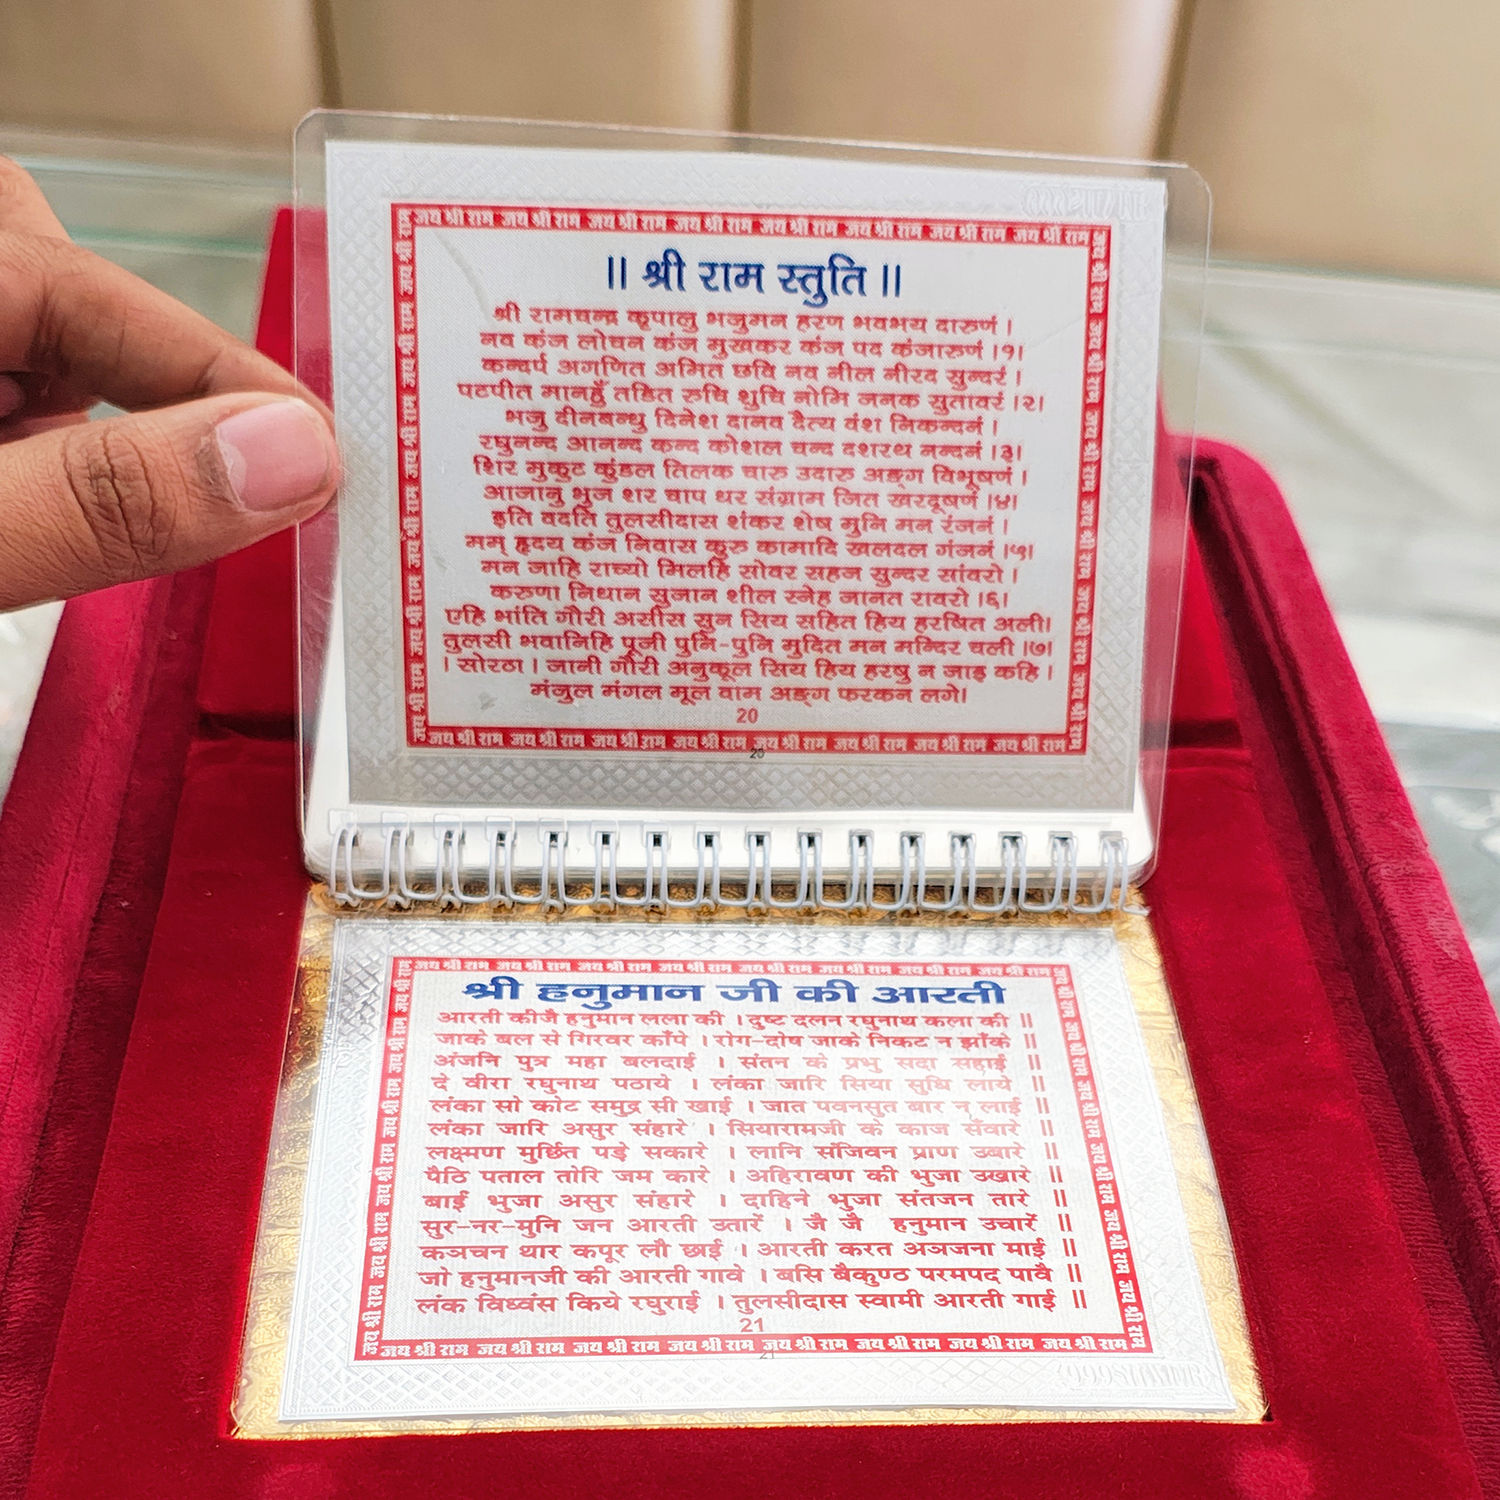 जय श्री राम जय श्री राम जय श्री राम जय श्री राम जय श्री राम जय श्री राम जय श्री राम जय श्री राम
|| श्री राम स्तुति ||
श्री रामचन्द्र कृपालु भजुमन हरण भवभय दारुणं ।
नव कंज लोचन कंज मुखकर कंज पद कंजारुणं ।१।
कन्दर्प अगणित अमित छवि नव नील नीरद सुन्दरं ।
पटपीत मानहुँ तडित रुचि शुचि नोमि जनक सुतावरं ।२।
भजु दीनबन्धु दिनेश दानव दैत्य वंश निकन्दनं ।
रघुनन्द आनन्द कन्द कोशल चन्द दशरथ नन्दनं ।३।
शिर मुकुट कुंडल तिलक चारु उदारु अङ्ग विभूषणं ।
आजानु भुज शर चाप धर संग्राम जित खरदूषणं ।४।
इति वदति तुलसीदास शंकर शेष मुनि मन रंजनं ।
मम् हृदय कंज निवास कुरु कामादि खलदल गंजनं ।५।
मन जाहि राच्यो मिलहि सोवर सहज सुन्दर सांवरो ।
करुणा निधान सुजान शील स्नेह जानत रावरो ।६।
एहि भांति गौरी असीस सुन सिय सहित हिय हरषित अली।
तुलसी भवानिहि पूजी पुनि-पुनि मुदित मन मन्दिर चली ।७।
। सोरठा । जानी गौरी अनुकूल सिय हिय हरषु न जाइ कहि ।
मंजुल मंगल मूल वाम अङ्ग फरकन लगे।
20
जय श्री राम जय श्री राम जय श्री राम जय श्री राम जय श्री राम जय श्री राम जय श्री राम जय श्री राम
20
जय श्री राम जय श्री राम जय श्री राम जय श्री राम जय श्री राम जय श्री राम जय श्री राम जय श्री राम
श्री हनुमान जी की आरती
आरती कीजै हनुमान लला की । दुष्ट दलन रघुनाथ कला की ॥
जाके बल से गिरवर काँपे । रोग-दोष जाके निकट न झाँके ॥
अंजनि पुत्र महा बलदाई । संतन के प्रभु सदा सहाई ॥
दे वीरा रघुनाथ पठाये । लंका जारि सिया सुधि लाये ॥
लंका सो कोट समुद्र सी खाई । जात पवनसुत बार न लाई ॥
लंका जारि असुर संहारे । सियारामजी के काज सँवारे ॥
लक्ष्मण मुर्छित पड़े सकारे । लानि संजिवन प्राण उबारे ॥
पैठि पताल तोरि जम कारे । अहिरावण की भुजा उखारे ॥
बाईं भुजा असुर संहारे । दाहिने भुजा संतजन तारे ॥
सुर-नर-मुनि जन आरती उतारें । जै जै हनुमान उचारें ॥
कञचन थार कपूर लौ छाई । आरती करत अञजना माई ॥
जो हनुमानजी की आरती गावे । बसि बैकुण्ठ परमपद पावै ॥
लंक विध्वंस किये रघुराई । तुलसीदास स्वामी आरती गाई ॥
21
जय श्री राम जय श्री राम जय श्री राम जय श्री राम जय श्री राम जय श्री राम जय श्री राम जय श्री राम
21